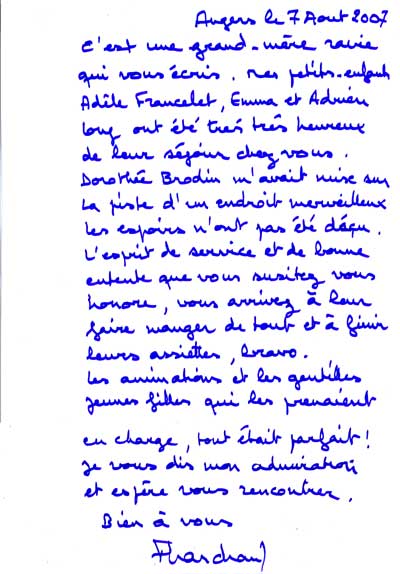 Angers le 7 Aout 2007
C'est une grand-mère ravie
qui vous écris. Mes petits-enfants
Adèle Francelet, Emma et Adrien
Long ont été très très heureux
de leur séjour chez vous.
Dorothée Brodin m'avait mise sur
la piste d'un endroit merveilleux
les espoirs n'ont pas été déçu.
L'esprit de service et de bonne
entente que vous susitez vous
honore, vous arrivez à leur
faire manger de tout et à finir
leurs assiettes, bravo.
Les animations et les gentilles
jeunes filles qui les prenaient
en charge, tout était parfait!
Je vous dis mon admiration
et espère vous rencontrer.
Bien à vous